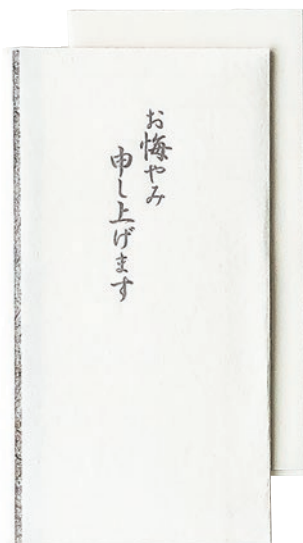 お悔やみ
申し上げます